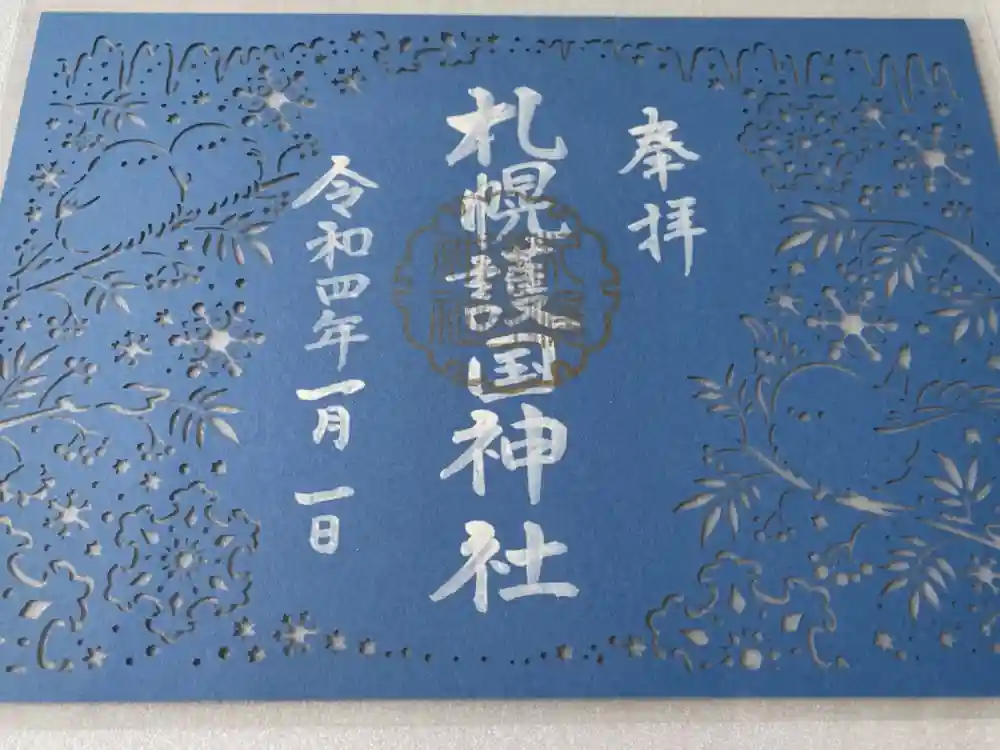 奉拝
札幌護国神社
令和四年一月一日